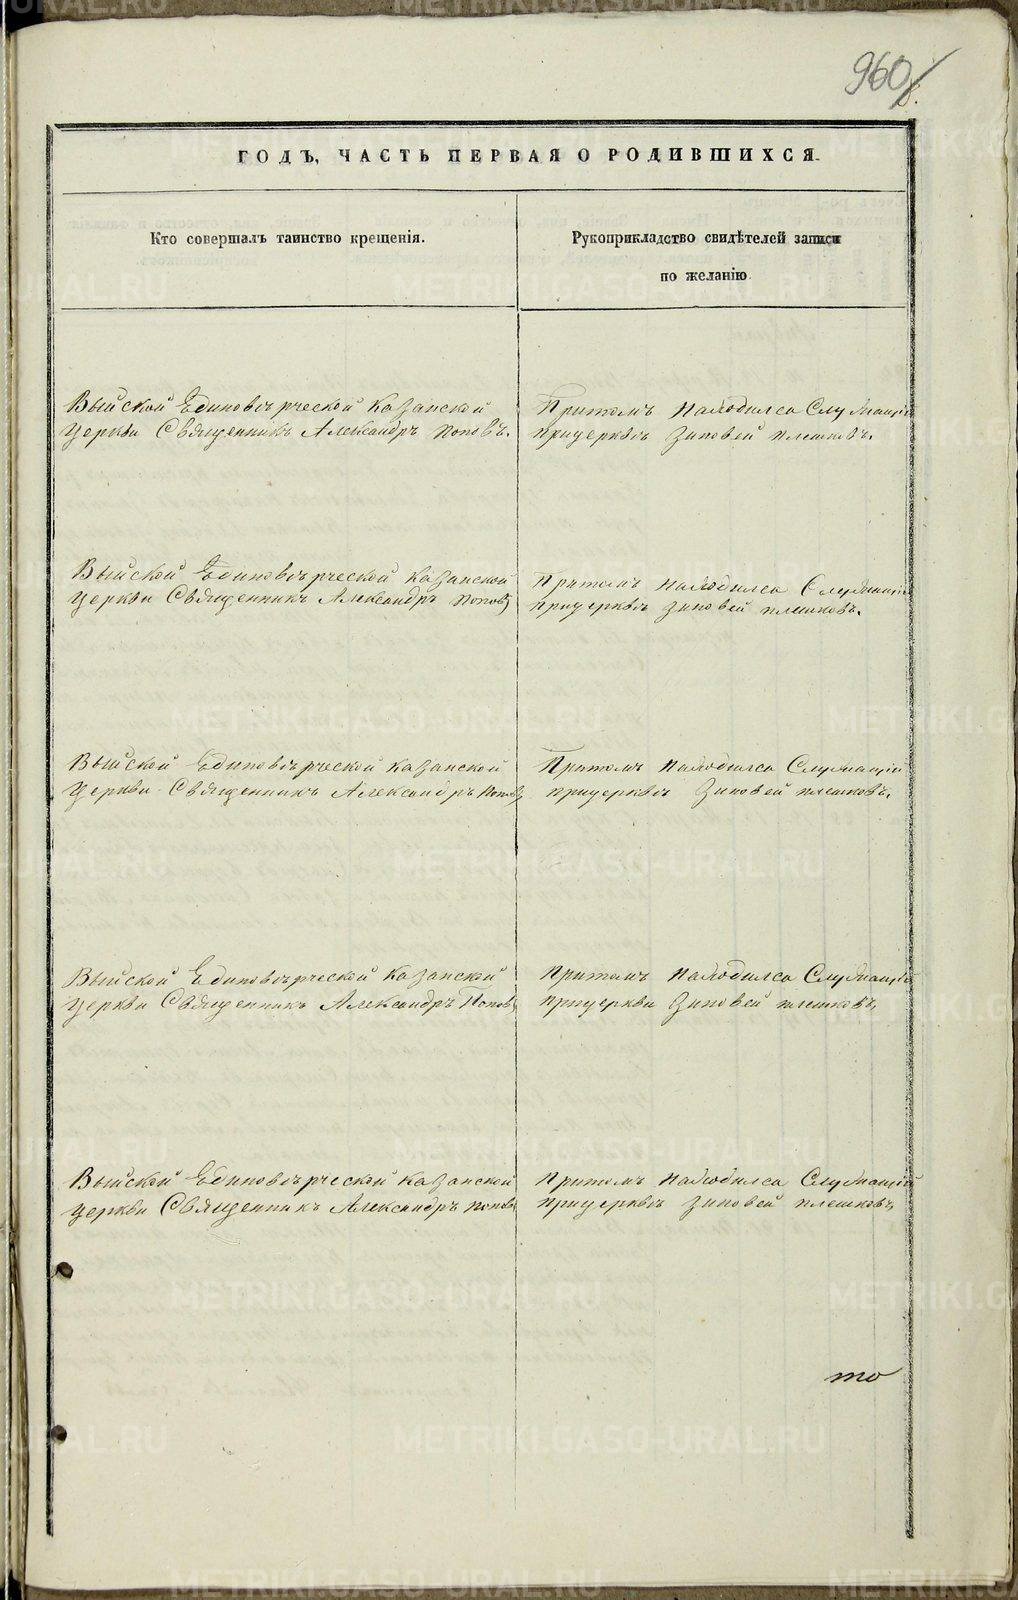 960
ГОДЪ, ЧАСТЬ ПЕРВАЯ О РОДИВШИХСЯ.
Кто совершалъ таинство крещенія.
Рукоприкладство свидѣтелей записи
по желанію.
Выйской Единовѣрческой Казанской
церкви Священникъ Александръ Поповъ.
Притомъ находился Служащій
прицерквѣ Зиновей плешковъ.
Выйской Единовѣрческой Казанской
церкви Священникъ Александръ Поповъ
Притомъ находился Служащій
прицерквѣ Зиновей плешковъ.
Выйской Единовѣрческой Казанской
церкви Священникъ Александръ Поповъ
Притомъ находился Служащій
прицерквѣ Зиновей плешковъ.
Выйской Единовѣрческой Казанской
церкви Священникъ Александръ Поповъ
притомъ находился Служащій
прицеркви Зиновей плешковъ,
Выйской Единовѣрческой Казанской
церкви Священникъ Александръ поповъ
притомъ находился Служащій
прицерквѣ Зиновей плешковъ,
то
METRIKI.GASO-URAL.RU